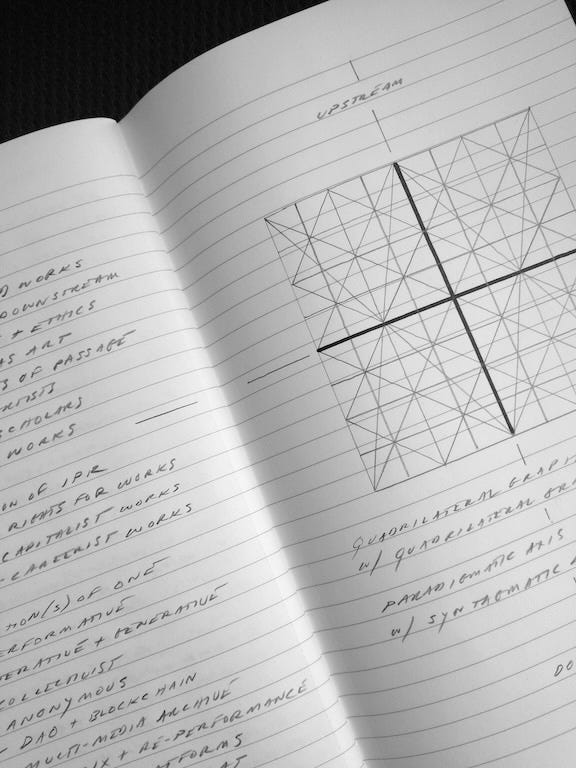 WORKS
DOWNSTREAM
+ ETHICS
AS ART
OF PASSAGE
ARTISTS
SCHOLARS
WORKS
OF IPR
RIGHTS FOR WORKS
CAPITALIST WORKS
-CAREERIST WORKS
OF ONE
PERFORMATIVE
+ GENERATIVE
COLLECTIVIST
ANONYMOUS
- DAO + BLOCKCHAIN
MULTI-MEDIA ARCHIVE
+ RE-PERFORMANCE
UPSTREAM
QUADRILATERAL
w/ QUADRILATERAL
PARADIGMATIC AXIS
w/ SYNTAGMATIC